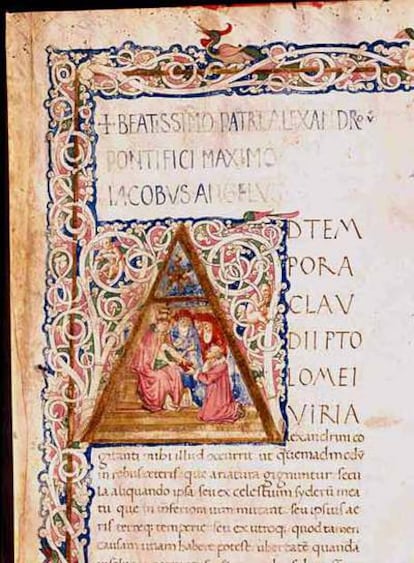 + BEATISSIMO PATRI ALEXANDRO V
PONTIFICI MAXIMO
IACOBVS ANGELVS
A
DTEM
PORA
CLAV
DII PTO
LOMEI
VIRIA
exandrini co
gitanti mihi illud occurrit ut quemadmodū
in rebus ceteris que a natura gignuntur secu
la aliquando ipsa seu ex celestium syderū mea
tu que in inferiora uim mutant seu ipsius ae
ris terreq; temperie seu ex utroq; quod tamen
causam unam habere potest ubertate quanda